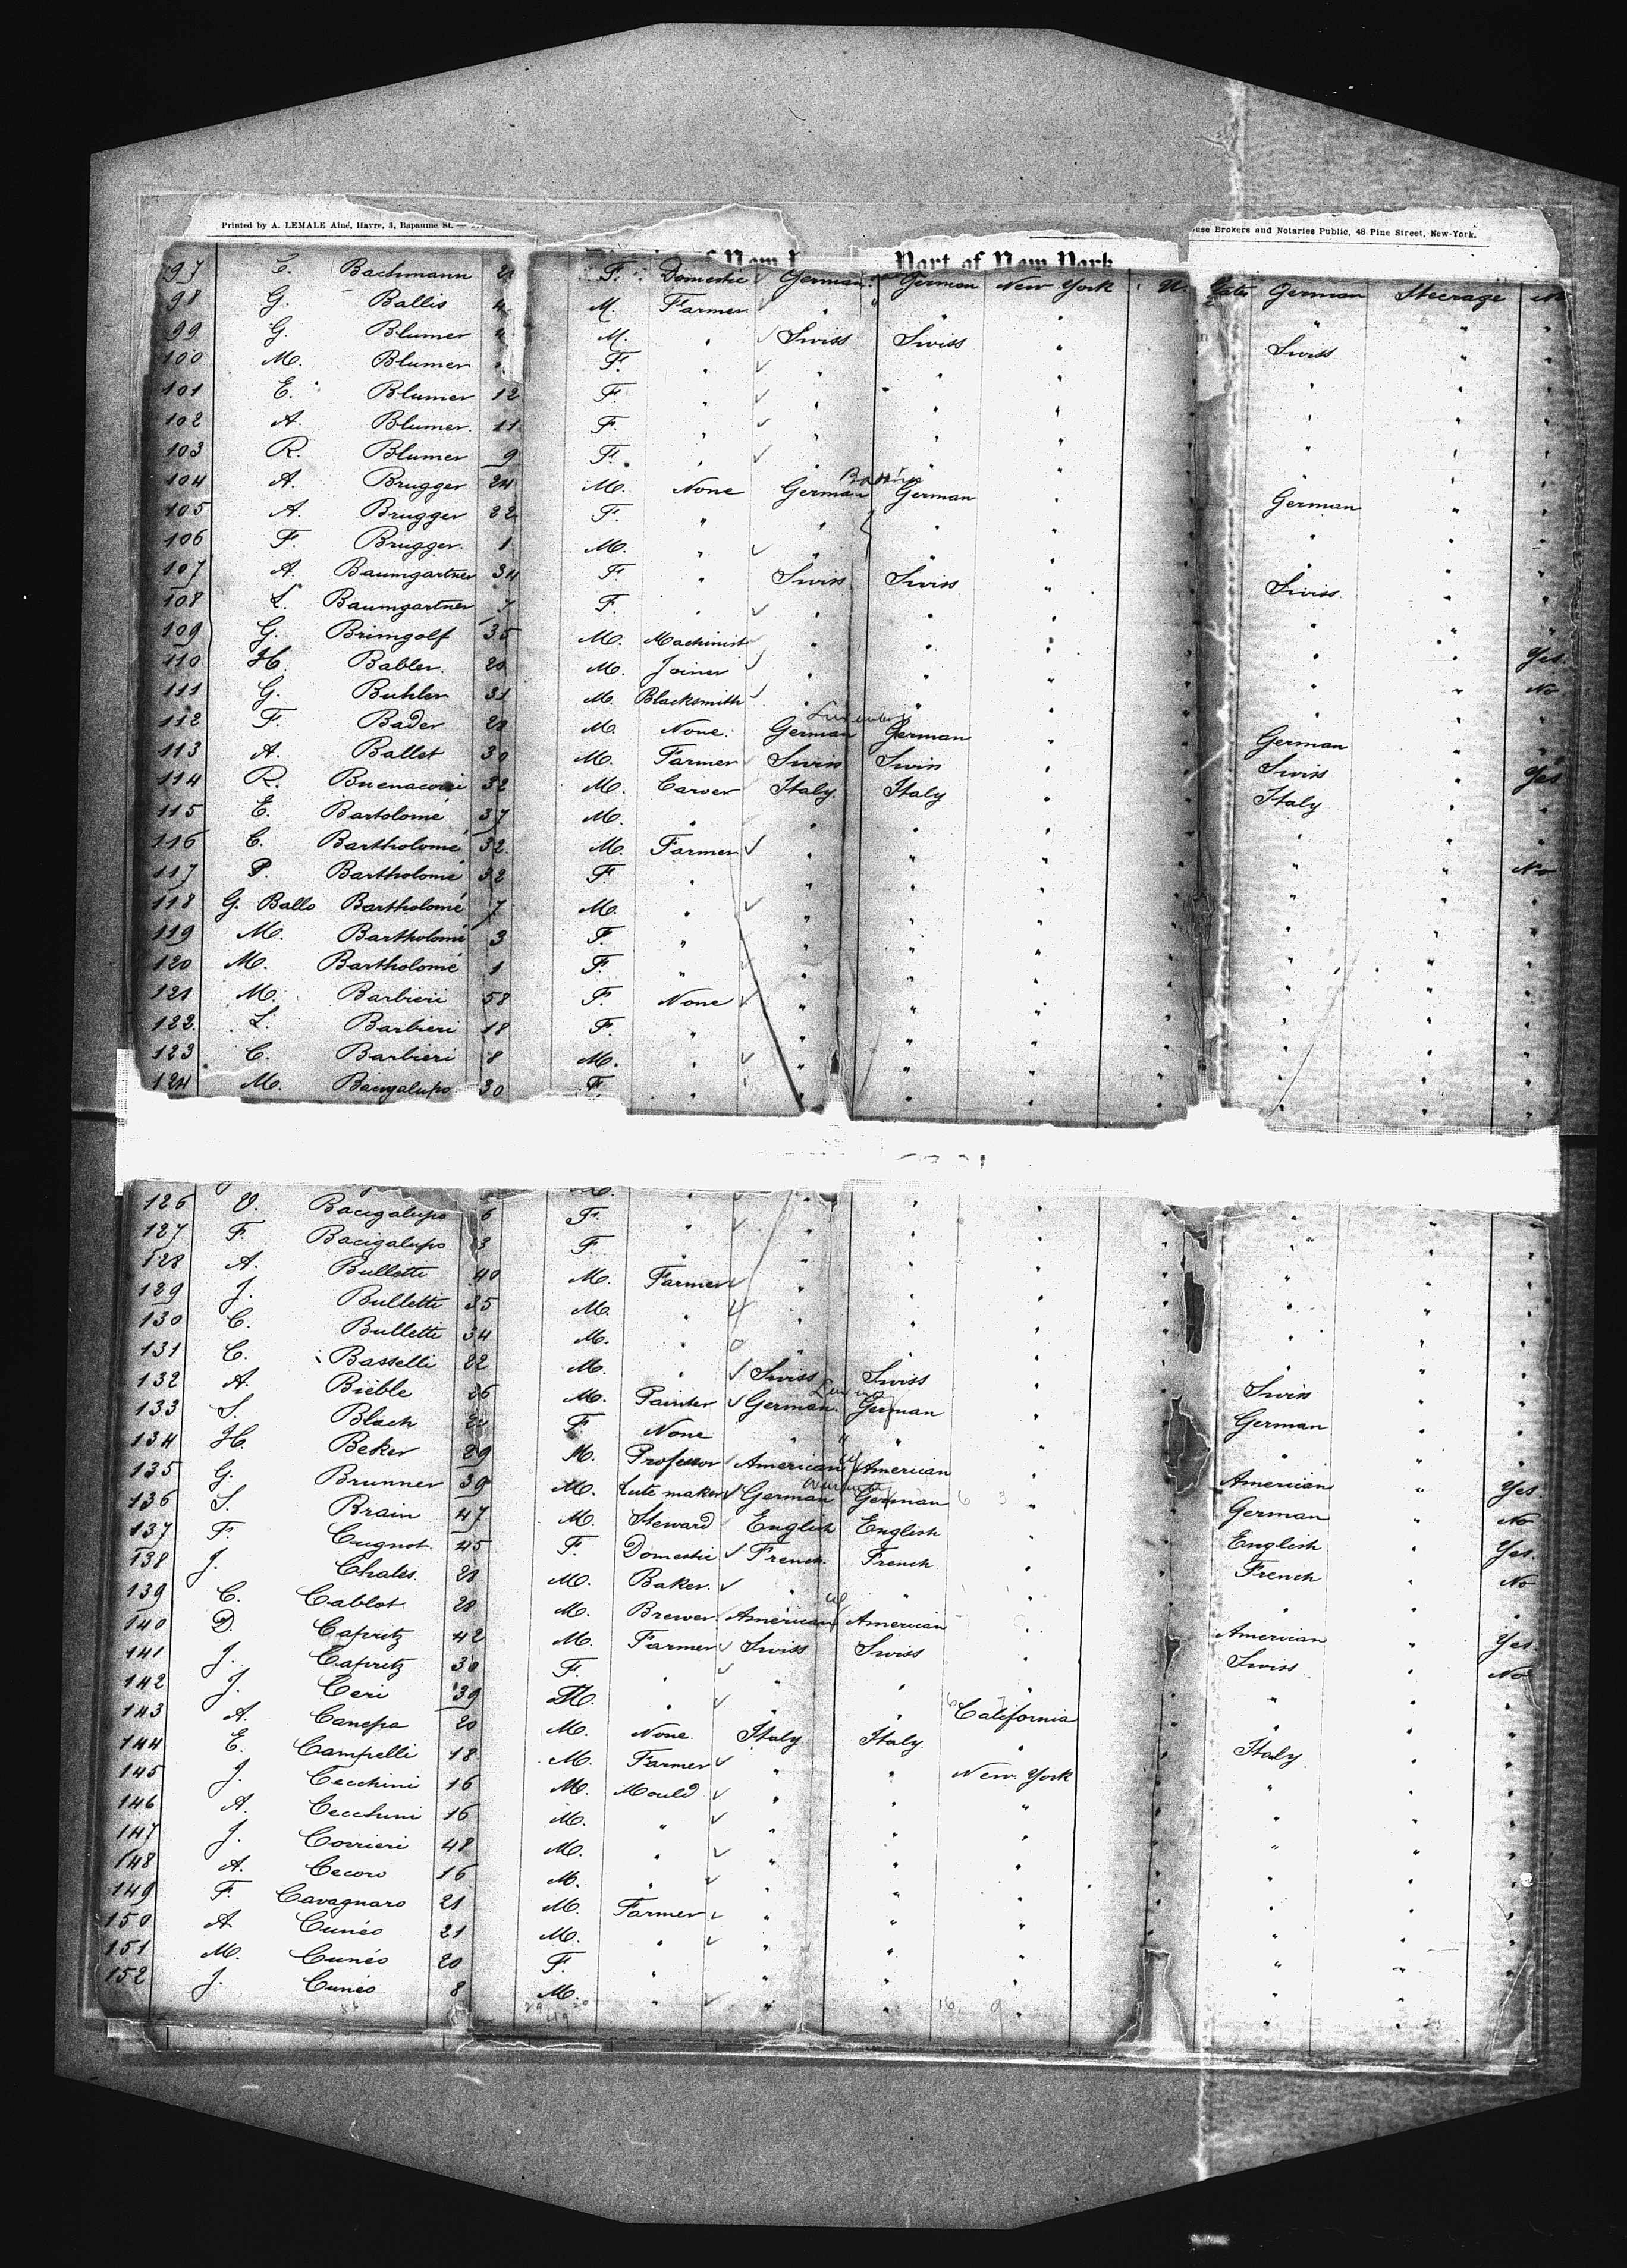 Printed by A. LEMALE Aîné, Havre, 3, Bapaume St. —
use Brokers and Notaries Public, 48 Pine Street, New-York.
of New Port of New York
97 C. Bachmann F. Domestic German German New York German Steerage
98 G. Ballis M. Farmer " " " " "
99 G. Blumer M. " Swiss Swiss " Swiss " "
100 M. Blumer F. " " " " " " "
101 E. Blumer 12 F. " " " " " " "
102 A. Blumer 11 F. " " " " " " "
103 R. Blumer 9 F. " " " " " " "
104 A. Brugger 24 M. None German German " German " "
105 A. Brugger 22 F. " " " " " " "
106 F. Brugger 1 M. " " " " " " "
107 A. Baumgartner 34 F. " Swiss Swiss " Swiss " "
108 L. Baumgartner 7 F. " " " " " " "
109 G. Brimgolf 35 M. Machinist " " " " " Yes
110 H. Babler 20 M. Joiner " " " " " No
111 G. Buhler 31 M. Blacksmith " " " " " "
112 F. Bader 28 M. None German German " German " "
113 A. Ballet 30 M. Farmer Swiss Swiss " Swiss " Yes
114 R. 32 M. Carver Italy Italy " Italy " "
115 E. Bartolomé 37 M. " " " " " " "
116 C. Bartholomé 32 M. Farmer " " " " " No
117 P. Bartholomé 32 F. " " " " " " "
118 G. Ballo Bartholomé 7 M. " " " " " " "
119 M. Bartholomé 3 F. " " " " " " "
120 M. Bartholomé 1 F. " " " " " " "
121 M. Barbieri 58 F. None " " " " " "
122 L. Barbieri 18 F. " " " " " " "
123 C. Barbieri 8 M. " " " " " " "
124 M. Bacigalupo 30 F. " " " " " " "
126 V. Bacigalupo 6 F. " " " " " " "
127 F. Bacigalupo 3 F. " " " " " " "
128 A. Bulletti 40 M. Farmer " " " " " "
129 J. Bulletti 35 M. " " " " " " "
130 C. Bulletti 34 M. " " " " " " "
131 C. Basselli 22 M. " Swiss Swiss " Swiss " "
132 A. Bieble 26 M. Painter German German " German " "
133 S. Bloch F. None " " " " " "
134 H. Beker 29 M. Professor American American " American " Yes
135 G. Brunner 39 M. Lute maker German German " German " No
136 S. Brain 47 M. Steward English English " English " Yes
137 F. Cugnot 45 F. Domestic French French " French " No
138 J. Chales 28 M. Baker " " " " " "
139 C. Cablot 28 M. Brewer American American " American " Yes
140 D. Capritz 42 M. Farmer Swiss Swiss " Swiss " No
141 J. Capritz 30 F. " " " " " " "
142 J. Ceri 39 M. " " " California " " "
143 A. Canepa 20 M. None Italy Italy " Italy " "
144 E. Campelli 18 M. Farmer " " New York " " "
145 J. Cecchini 16 M. Mould " " " " " "
146 A. Cecchini 16 M. " " " " " " "
147 J. Corrieri 48 M. " " " " " " "
148 A. Cecoro 16 M. " " " " " " "
149 F. Cavagnaro 21 M. Farmer " " " " " "
150 A. Cunéo 21 M. " " " " " " "
151 M. Cunéo 20 F. " " " " " " "
152 J. Cunéo 8 M. " " " " " " "